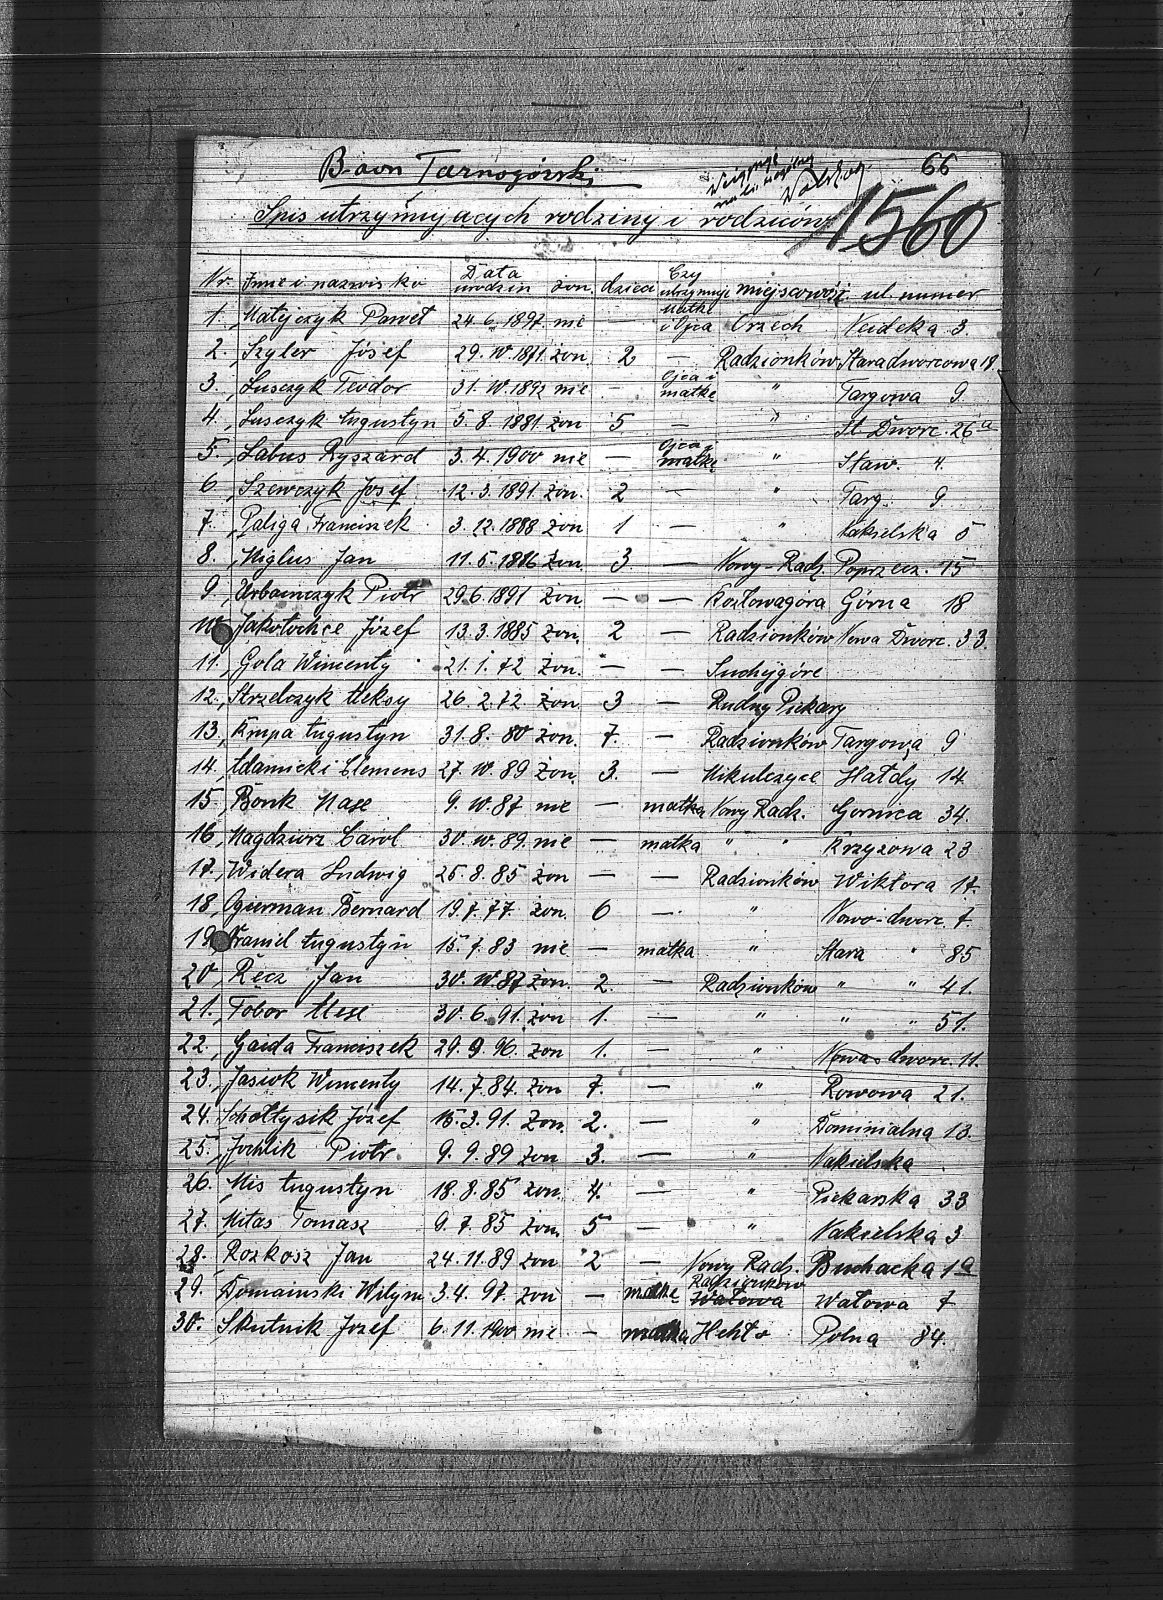 66
Baon Tarnogórski
1560
Spis utrzymujących rodziny i rodziców
Nr. Imię i nazwisko Data urodzin żon. dzieci Czy utrzymuje miejscowość ul. numer
1. Matejczyk Paweł 24.6.1897 nie — matkę i Ojca Orzech Neudeka 3.
2. Szyler Józef 29.10.1871 żon 2 — Radzionków Staradworcowa 18.
3. Lusczyk Teodor 31.10.1892 nie — Ojca i matkę " Targowa 9.
4. Lusczyk Augustyn 5.8.1881 żon 5 — " St Dworc. 26a
5. Labus Ryszard 3.4.1900 nie — Ojca i matkę " Staw. 4.
6. Szewczyk Josef 12.3.1891 żon. 2 — " Targ. 9.
7. Paliga Franciszek 3.12.1888 żon 1 — " Nakielska 5
8. Miglus Jan 11.5.1886 żon 3 — Nowy-Radz. Poprzecz. 15
9. Urbainczyk Piotr 29.6.1891 żon. — — Kozlowagóra Górna 18
10. Józef 13.3.1885 żon. 2 — Radzionków Nowa Dworc. 33.
11. Gola Wincenty 21.1.72 żon. — — Suchygóre
12. Strzelczyk Aleksy 26.2.72 żon. 3 — Rudny Piekary
13. Krupa Augustyn 31.8.80 żon. 7. — Radzionków Targowa 9
14. Adamicki Clemens 27.10.89 żon. 3. — Mikulczyce Hałdy 14
15. Bonk 9.10.87 nie — matka Nowy Radz. Gornica 34.
16. Magdziorz Carol 30.10.89. nie — matka " " Krzyzowa 23
17. Widera Ludwig 25.8.85 żon — — Radzionków Wiktora 17.
18. Ogierman Bernard 19.7.77. żon. 6 — " Nowo-dworc. 7.
19. Augustyn 15.7.83 nie — matka " Stara " 85
20. Recz Jan 30.10.87 żon. 2. — Radzionków " " 41.
21. Tobor 30.6.91. żon 1. — " " " 51.
22. Gaida Franciszek 29.9.96. żon 1. — " Nowa dworc. 11.
23. Jasiok Wincenty 14.7.84. żon 7. — " Rowowa 21.
24. Scholtysik Józef 15.3.91. żon. 2. — " Dominialna 13.
25. Jochlik Piotr. 9.9.89 żon 3. — " Nakielska
26. Mis Augustyn 18.8.85 żon. 4. — " Piekarska 33
27. Mitas Tomasz 9.7.85 żon. 5 — " Nakielska 3
28. Rozkosz Jan 24.11.89 żon. 2 — Nowy Radz. Buchacka 1a
29. Domainski Wilym 3.4.97. żon — matkę Radzionków Watowa Watowa 7
30. Skutnik Jozef 6.11.1900 nie — matka Polna 84.